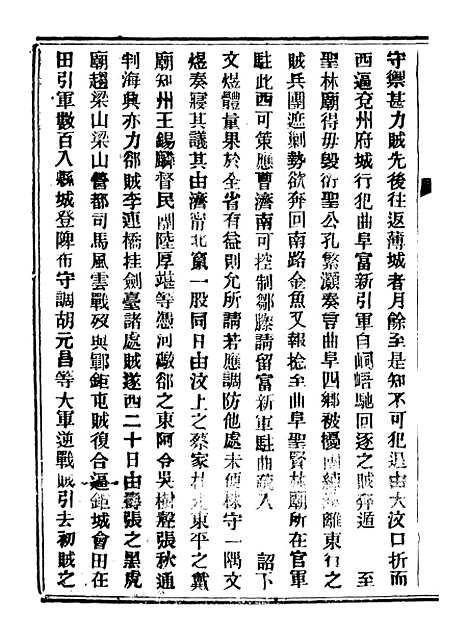 守禦甚力賊先後往返薄城者月餘至是知不可犯退由大汶口折而
西逼兗州府城行犯曲阜富新引軍自峒峿馳回逐之賊奔遁　至
聖林廟得毋毀衍聖公孔繁灝奏言曲阜四鄉被擾團練離東行之
賊兵團遮剿勢欲奔回南路金魚又報捻至曲阜聖賢林廟所在官軍
駐此西可策應曹濟南可控制鄒滕請留富新軍駐曲入　詔下
文煜體量果於全省有益則允所請若應調防他處未便株守一隅文
煜奏寢其議其由濟甯北竄一股同日由汶上之蔡家東平之戴
廟知州王錫麟督民團陸厚堪等憑河礮郤之東阿令吳樹聲張秋通
判海興亦力郤賊李連橋挂劍臺諸處賊遂西二十日由壽張之黑虎
廟趨梁山梁山營都司馬風雲戰歿與鄆鉅屯賊復合逼鉅城會田在
田引軍數百入縣城登陴布守調胡元昌等大軍逆戰賊引去初賊之